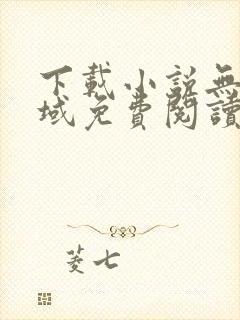 下載小說無
域免費閱讀
菱七